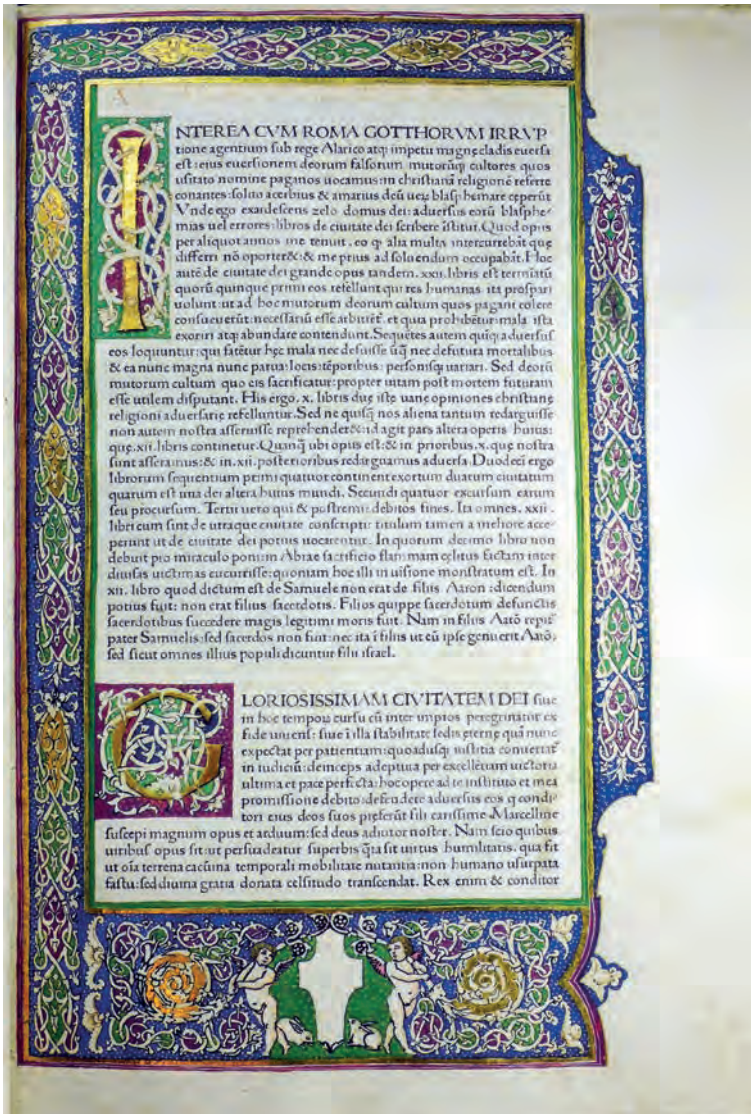 INTEREA CVM ROMA GOTTHORVM IRRVP
tione agentium sub rege Alarico atq; impetu magnę cladis euersa
est: eius euersionem deorum falsorum mutorūq; cultores quos
usitato nomine paganos uocamus: in christianā religionē referre
conantes: solito acerbius & amarius deū uerū blasphemare ceperūt
Vnde ego exardescens zelo domus dei: aduersus eorū blasphe⸗
mias uel errores: libros de ciuitate dei scribere īstitui. Quod opus
per aliquot annos me tenuit. eo q̄ alia multa intercurrebāt quę
differri nō oporter&: & me prius ad soluendum occupabāt. Hoc
autē de ciuitate dei grande opus tandem .xxii. libris est terminatū
quorū quinque primi eos refellunt qui res humanas ita prosperari
uolunt: ut ad hoc mutorum deorum cultum quos pagani colere
consueuerūt: necessariū esse arbitrēt. et quia prohibētur: mala ista
exoriri atq; abundare contendunt. Sequētes autem quiq; aduersus
eos loquuntur: qui fatētur hęc mala nec defuisse ūq̄ nec defutura mortalibus
& ea nunc magna nunc parua: locis: tēporibus: personisq; uariari. Sed deorū
mutorum cultum quo eis sacrificatur: propter uitam post mortem futuram
esse utilem disputant. His ergo .x. libris duę istę uanę opiniones christianę
religioni aduersarię refelluntur. Sed ne quisq̄ nos aliena tantum redarguisse
non autem nostra asseruisse reprehender&: id agit pars altera operis huius:
quę .xii. libris continetur. Quanq̄ ubi opus est: & in prioribus .x. quę nostra
sunt asseramus: & in .xii. posterioribus redarguamus aduersa. Duodeci ergo
librorum sequentium primi quatuor continent exortum duarum ciuitatum
quarum est una dei altera huius mundi. Secundi quatuor excursum earum
seu procursum. Tertii uero qui & postremi: debitos fines. Ita omnes .xxii.
libri cum sint de utraque ciuitate conscripti: titulum tamen a meliore acce⸗
perunt ut de ciuitate dei potius uocarentur. In quorum decimo libro non
debuit pro miraculo poni in Abrae sacrificio flammam cęlitus factam inter
diuisas uictimas cucurrisse: quoniam hoc illi in uisione monstratum est. In
xii. libro quod dictum est de Samuele non erat de filiis Aaron: dicendum
potius fuit: non erat filius sacerdotis. Filios quippe sacerdotum defunctis
sacerdotibus succedere magis legitimi moris fuit. Nam in filiis Aarō repit̄
pater Samuelis: sed sacerdos non fuit: nec ita ī filiis ut eū ipse genuerit Aarō:
sed sicut omnes illius populi dicuntur filii israel.
GLORIOSISSIMAM CIVITATEM DEI siue
in hoc temporū cursu cū inter impios peregrinatur ex
fide uiuens: siue ī illa stabilitate sedis ęternę quā nunc
expectat per patientiam: quoadusq; iustitia conuertat̄
in iudiciū: deinceps adeptura per excellētiam uictoria
ultima et pace perfecta: hoc opere ad te instituto et mea
promissione debito: defendere aduersus eos q condi⸗
tori eius deos suos pręferūt fili carissime Marcelline
suscepi magnum opus et arduum: sed deus adiutor noster. Nam scio quibus
uiribus opus sit: ut persuadeatur superbis q̄ta sit uirtus humilitatis. qua fit
ut oīa terrena cacūina temporali mobilitate nutantia: non humano usurpata
fastu: sed diuina gratia donata celsitudo transcendat. Rex enim & conditor